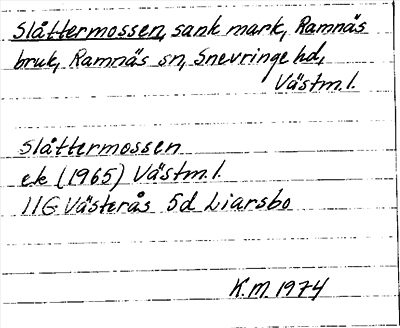 Slåttermossen, sank mark, Ramnäs
bruk, Ramnäs sn, Snevringe hd,
Västm.l.
Slåttermossen
ek (1965) Västm.l.
11G Västerås 5d Liarsbo
K.M. 1974